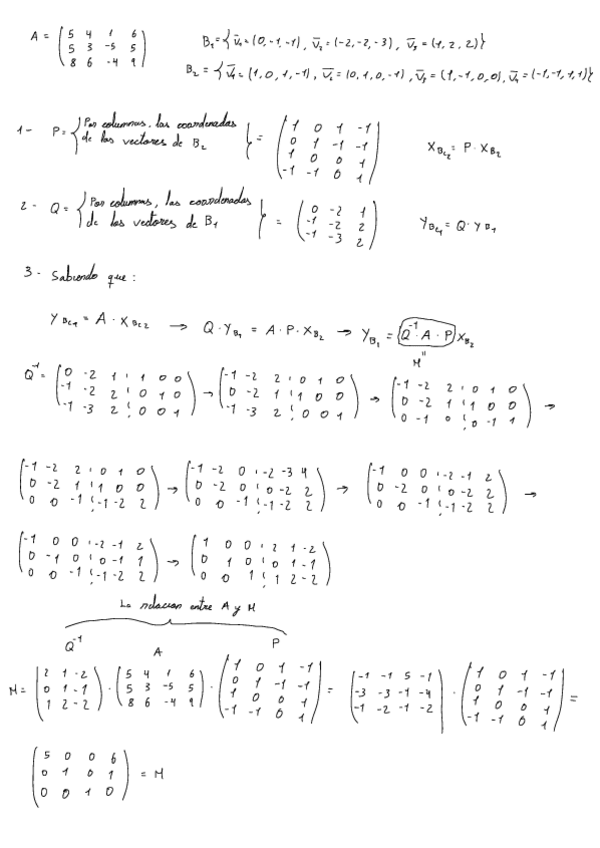 A = (5 4 1 6 / 5 3 -5 5 / 8 6 -4 9)
B₁ = { v̄₁ = (0, -1, -1), v̄₂ = (-2, -2, -3), v̄₃ = (1, 2, 2)}
B₂ = { v̄₁ = (1, 0, 1, -1), v̄₂ = (0, 1, 0, -1), v̄₃ = (1, -1, 0, 0), v̄₄ = (-1, -1, 1, 1)}
1- P = { Por columnas, las coordenadas de los vectores de B₂ } = (1 0 1 -1 / 0 1 -1 -1 / 1 0 0 1 / -1 -1 0 1) X_Bc₂ = P · X_B₂
2- Q = { Por columnas, las coordenadas de los vectores de B₁ } = (0 -2 1 / -1 -2 2 / -1 -3 2) Y_Bc₁ = Q · Y_B₁
3- Sabiendo que:
Y_Bc₁ = A · X_Bc₂ → Q · Y_B₁ = A · P · X_B₂ → Y_B₁ = (Q⁻¹ · A · P) X_B₂
"
M
Q⁻¹ = (0 -2 1 ¦ 1 0 0 / -1 -2 2 ¦ 0 1 0 / -1 -3 2 ¦ 0 0 1) → (-1 -2 2 ¦ 0 1 0 / 0 -2 1 ¦ 1 0 0 / -1 -3 2 ¦ 0 0 1) → (-1 -2 2 ¦ 0 1 0 / 0 -2 1 ¦ 1 0 0 / 0 -1 0 ¦ 0 -1 1) →
(-1 -2 2 ¦ 0 1 0 / 0 -2 1 ¦ 1 0 0 / 0 0 -1 ¦ -1 -2 2) → (-1 -2 0 ¦ -2 -3 4 / 0 -2 0 ¦ 0 -2 2 / 0 0 -1 ¦ -1 -2 2) → (-1 0 0 ¦ -2 -1 2 / 0 -2 0 ¦ 0 -2 2 / 0 0 -1 ¦ -1 -2 2) →
(-1 0 0 ¦ -2 -1 2 / 0 -1 0 ¦ 0 -1 1 / 0 0 -1 ¦ -1 -2 2) → (1 0 0 ¦ 2 1 -2 / 0 1 0 ¦ 0 1 -1 / 0 0 1 ¦ 1 2 -2)
La relacion entre A y M
Q⁻¹ A P
M = (2 1 -2 / 0 1 -1 / 1 2 -2) · (5 4 1 6 / 5 3 -5 5 / 8 6 -4 9) · (1 0 1 -1 / 0 1 -1 -1 / 1 0 0 1 / -1 -1 0 1) = (-1 -1 5 -1 / -3 -3 -1 -4 / -1 -2 -1 -2) · (1 0 1 -1 / 0 1 -1 -1 / 1 0 0 1 / -1 -1 0 1) =
(5 0 0 6 / 0 1 0 1 / 0 0 1 0) = M